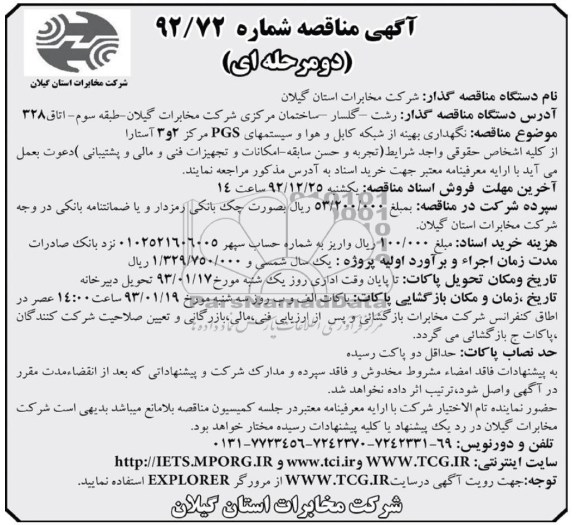 آگهی مناقصه شماره ۹۲/۷۲
(دومرحله ای)
شرکت مخابرات استان گیلان
نام دستگاه مناقصه گذار: شرکت مخابرات استان گیلان
آدرس دستگاه مناقصه گذار: رشت –گلسار –ساختمان مرکزی شرکت مخابرات گیلان-طبقه سوم- اتاق۳۲۸
موضوع مناقصه: نگهداری بهینه از شبکه کابل و هوا و سیستمهای PGS مرکز ۲و۳ آستارا
از کلیه اشخاص حقوقی واجد شرایط(تجربه و حسن سابقه-امکانات و تجهیزات فنی و مالی و پشتیبانی )دعوت بعمل
می آید با ارایه معرفینامه معتبر جهت خرید اسناد به آدرس مذکور مراجعه نمایند.
آخرین مهلت فروش اسناد مناقصه: یکشنبه ۹۲/۱۲/۲۵ ساعت ۱۴
سپرده شرکت در مناقصه: بمبلغ ۵۳/۲۰۰/۰۰۰ ریال بصورت چک بانکی رمزدار و یا ضمانتنامه بانکی در وجه
شرکت مخابرات استان گیلان.
هزینه خرید اسناد: مبلغ ۱۰۰/۰۰۰ ریال واریز به شماره حساب سپهر ۰۱۰۲۵۲۱۶۰۶۰۰۵ نزد بانک صادرات
مدت زمان اجراء و برآورد اولیه پروژه : یک سال شمسی و ۱/۳۲۹/۷۵۰/۰۰۰ ریال
تاریخ ومکان تحویل پاکات: تا پایان وقت اداری روز یک شنبه مورخ۹۳/۰۱/۱۷ تحویل دبیرخانه
تاریخ ،زمان و مکان بازگشایی پاکات: پاکات الف و ب روز سه شنبه مورخ ۹۳/۰۱/۱۹ ساعت۱۴:۰۰ عصر در
اطاق کنفرانس شرکت مخابرات بازگشائی و پس از ارزیابی فنی،مالی،بازرگانی و تعیین صلاحیت شرکت کنندگان
،پاکات ج بازگشائی می گردد.
حد نصاب پاکات: حداقل دو پاکت رسیده
به پیشنهادات فاقد امضاء مشروط مخدوش و فاقد سپرده و مدارک شرکت و پیشنهاداتی که بعد از انقضاءمدت مقرر
در آگهی واصل شود،ترتیب اثر داده نخواهد شد.
حضور نماینده تام الاختیار شرکت با ارایه معرفینامه معتبردر جلسه کمیسیون مناقصه بلامانع میباشد بدیهی است شرکت
مخابرات گیلان در رد یک پیشنهاد یا کلیه پیشنهادات رسیده مختار خواهد بود.
تلفن و دورنویس: ۶۹-۷۲۴۲۳۳۱-۷۲۴۲۳۷۰-۷۷۲۳۴۵۶-۰۱۳۱
سایت اینترنتی: WWW.TCG.IR وwww.tci.ir و http://IETS.MPORG.IR
توجه:جهت رویت آگهی درسایتWWW.TCG.IR از مرورگر EXPLORER استفاده نمایید.
شرکت مخابرات استان گیلان